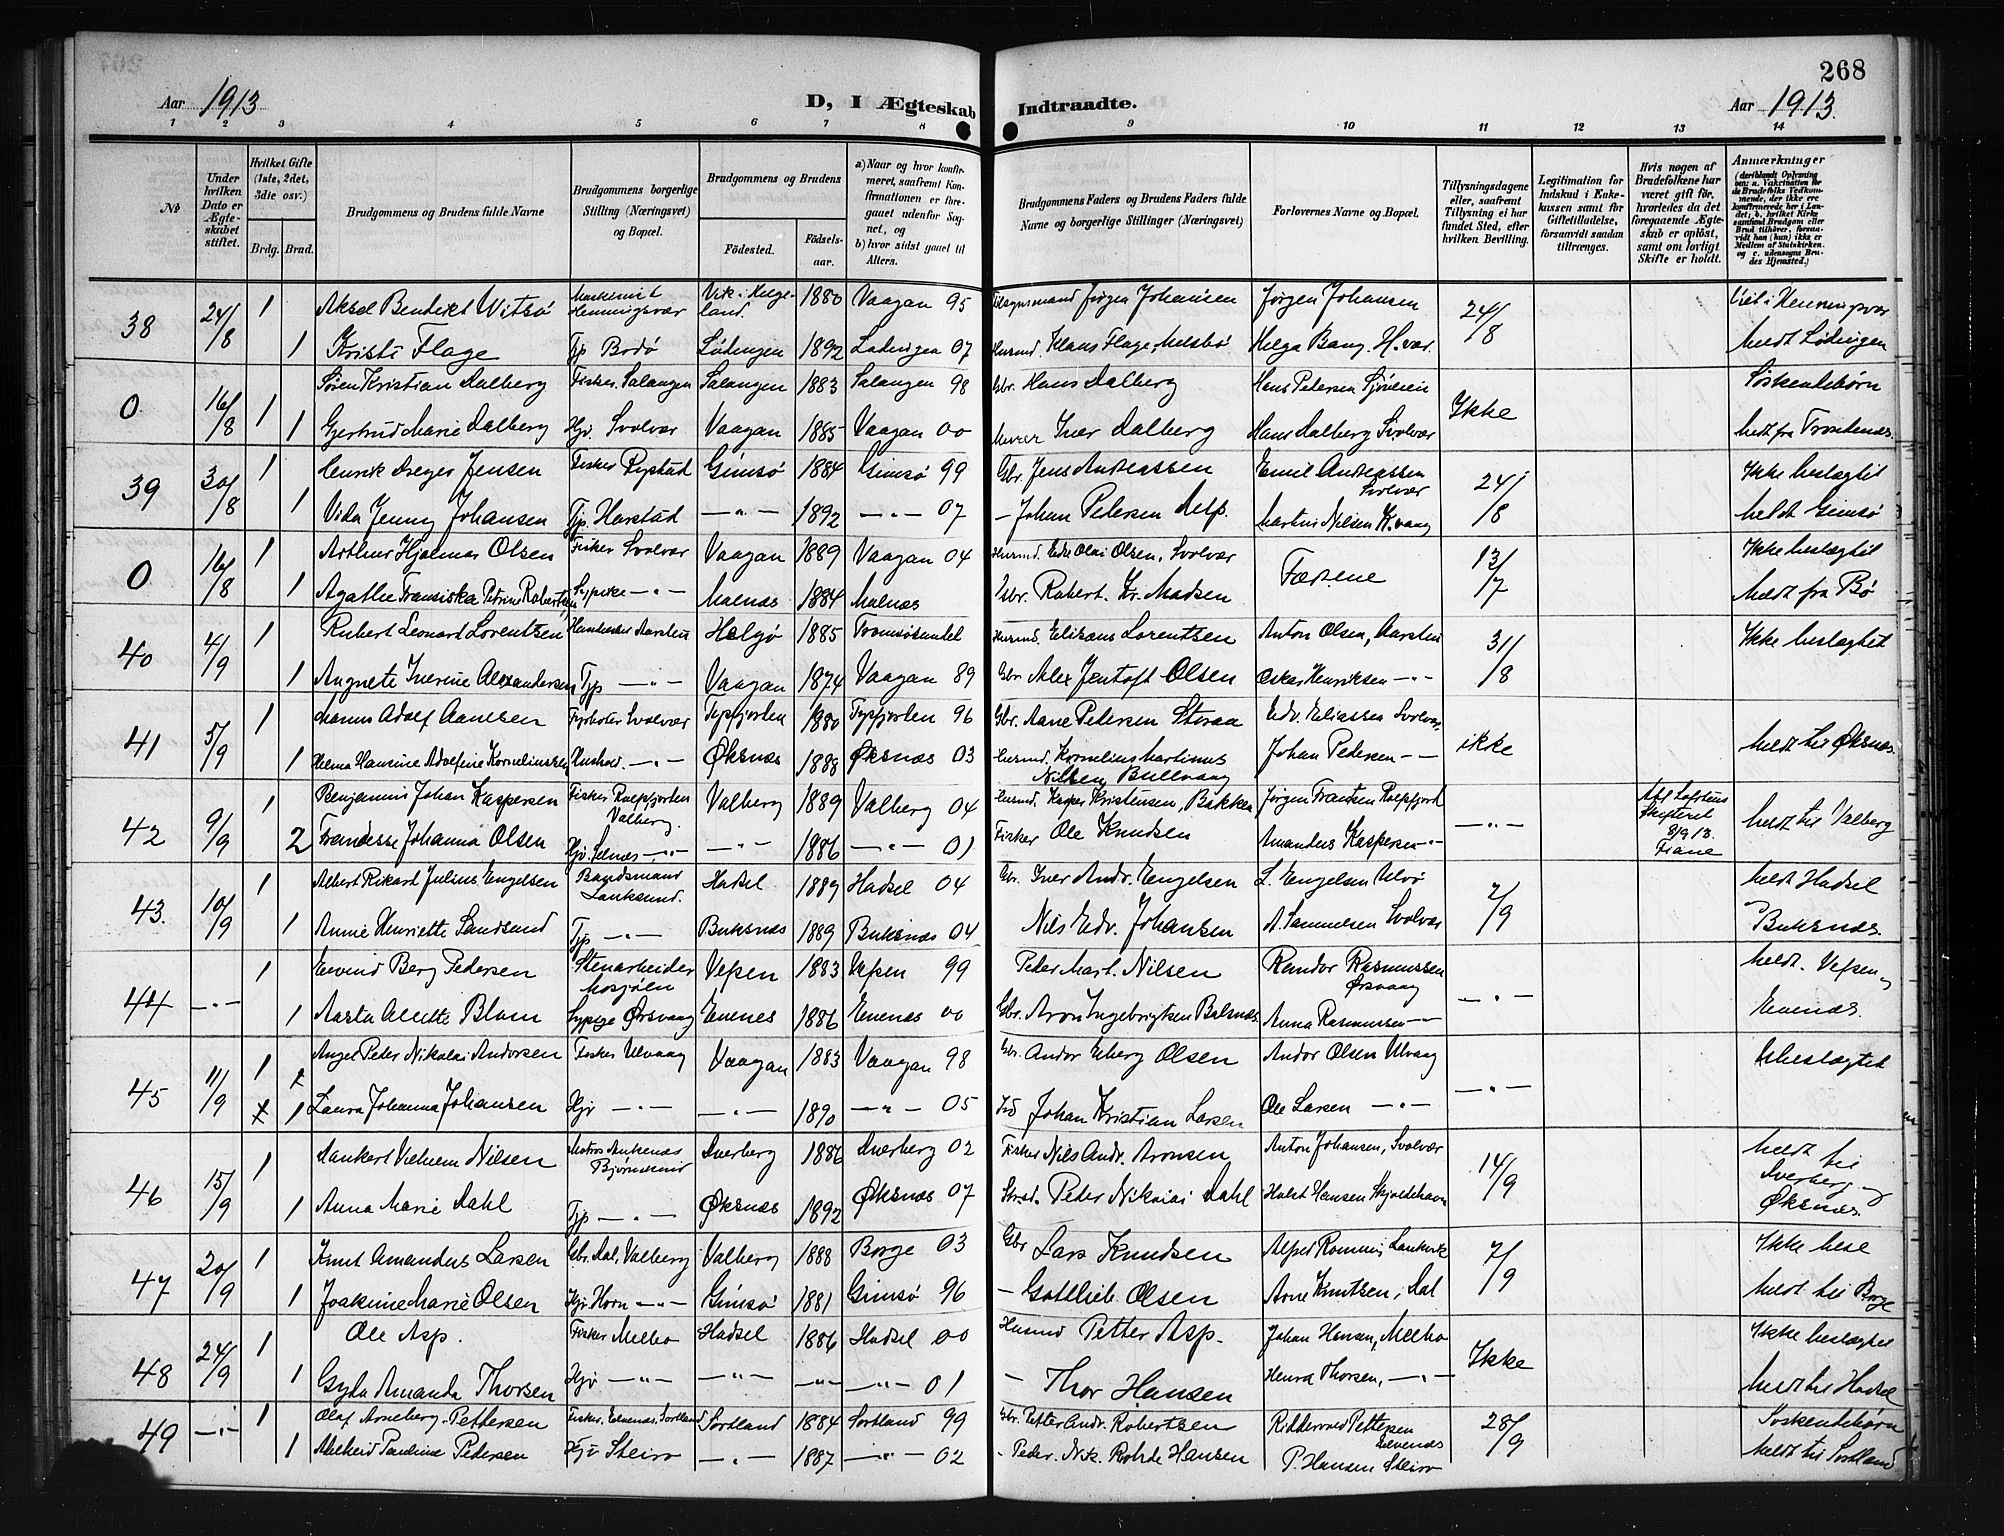 268
Aar 1913 D, I Ægteskab Indtraadte. Aar 1913.
1 2 3 4 5 6 7 8 9 10 11 12 13 14
№
Under hvilken Dato er Ægteskabet stiftet.
Hvilket Gifte (1ste, 2det, 3die osv.)
Brdg. Brud.
Brudgommens og Brudens fulde Navne
Brudgommens borgerlige Stilling (Næringsvei) og Bopæl.
Brudgommens og Brudens
Fødested. Fødselsaar.
a) Naar og hvor konfirmeret, saafremt Konfirmationen er foregaaet udenfor Sognet, og
b) hvor sidst gaaet til Alters.
Brudgommens Faders og Brudens Faders fulde Navne og borgerlige Stillinger (Næringsvei)
Forlovernes Navne og Bopæl.
Tillysningsdagene eller, saafremt Tillysning ei har fundet Sted, efter hvilken Bevilling.
Legitimation for Indskud i Enkekassen samt for Giftetilladelse, forsaavidt saadan tiltrænges.
Hvis nogen af Brudefolkene har været gift før, hvorledes da det foregaaende Ægteskab er opløst, samt om lovligt Skifte er holdt.
Anmærkninger (deriblandt Oplysning om: a. Vakcination for de Brudefolks Vedkommende, der ikke ere konfirmerede her i Landet; b. hvilket Kirkesamfund Brudgom eller Brud tilhører, forsaavidt han (hun) ikke er Medlem af Statskirken. og c. udensogns Brudes Hjemsted.)
38 24/8 1 Aksel Bendikt Witsø Henningsvær Vik i Helgeland. 1880 Vaagan 95 Jørgen Johansen Jørgen Johansen 24/8
1 Kristi Flage Tjp Bodø Lødingen 1892 Lødingen 07 Husmd. Klaus Flage, Helga Bang. H.vær. meldt Lødingen
0 16/8 1 Søren Kristian Dalberg Fisker Salangen Salangen 1883 Salangen 98 Gbr. Hans Dalberg Hans Petersen Ikke Søskendebørn
1 Gjertrud Marie Dalberg Hjv. Svolvær Vaagan 1885 Vaagan 00 Iver Dalberg Hans Dalberg Svolvær meldt fra Trondenes.
39 30/8 1 Henrik Dreyer Jensen Fisker Rystad Gimsø 1884 Gimsø 99 Gbr. Jens Andreassen Emil Andreassen Svolvær 24/8 Ikke beslægtet
1 Vida Jenny Johansen Tjp. Harstad — „ — 1892 — „ — 07 - Johan Petersen Delp. Martin Nilsen K.vaag meldt Gimsø
0 16/8 1 Arthur Hjalmar Olsen Fisker Svolvær Vaagan 1889 Vaagan 04 Husmd. Edv. Olai Olsen, Svolvær Fædrene 13/7 Ikke beslægtet
1 Agathe Fransiska Petrine Robertsen Sypike — „ — Malnes 1884 Malnes Gbr. Robert. Kr. Madsen Meldt fra Bø
40 4/9 1 Robert Leonart Lorentsen Helgø 1885 Tromsøsundet Husmd. Elizæus Lorentsen Anton Olsen, 31/8 Ikke beslægtet
1 Angnete Iverine Alexandersen Tjp — „ — Vaagan 1874 Vaagan 89 Gbr. Alex Jentoft Olsen Oskar Henriksen — „ —
41 5/9 1 Adolf Aanesen Svolvær Tysfjorden 1880 Tysfjorden 96 Gbr. Aane Petersen Storaa Edv. Eliassen Svolvær ikke
1 Helma Hansine Adolfine Korneliussen Hushold. — „ — Øksnæs 1888 Øksnæs 03 Husmd. Kornelius Martinus Nilsen Bullvaag Johan Pedersen — „ — meldt til Øksnæs
42 9/9 1 Benjamin Johan Kaspersen Fisker Rolfsfjorden Valberg. Valberg 1889 Valberg 04 Husmd. Kasper Kristensen, Bakken Jørgen Frantsen Rolfsfjord — „ — meldt til Valberg
2 Johanna Olsen Hjv. Selnæs — „ — — „ — 1886 — „ — 01 Fisker Ole Knudsen Amandus Kaspersen — „ —
43. 10/9 1 Albert Rikart Julius Engelsen Hadsel 1889 Hadsel 04 Gbr. Iver Andr. Engelsen L. Engelsen Ulvø 7/9 meldt Hadsel
1 Annie Henriette Sandsund Tjp — „ — Buksnæs 1889 Buksnæs 04 Nils Edv. Johansen A. Samuelsen Svolvær Buksnæs.
44 — „ — 1 Eivind Berg Pedersen Stenarbeider Mosjøen Vefsen 1883 Vefsen 99 Peder Mart. Nilsen Reidar Rasmussen Ørsvaag — „ — meldt. Vefsen og
1 Aasta Anette Blom Sypige Ørsvaag Evenes 1886 Evenes 00 Gbr. Aron Ingebrigtsen Balsnæs Anna Rasmussen — „ — Evenæs.
45 11/9 1 Angel Peter Nikolai Andorsen Fisker Ulvaag Vaagan 1883 Vaagan 98 Gbr. Andor Esberg Olsen Andor Olsen Ulvaag — „ — Ubeslægtet
1 Laura Johanna Johansen Hjv — „ — — „ — 1890 — „ — 05 Johan Kristian Larsen Ole Larsen — „ —
46 15/9 1 Vilhelm Nilsen Dverberg 1886 Dverberg 02 Fisker Nils Andr. Aronsen Anton Johansen, Svolvær 14/9 meldt til Dverberg og Øksnæs.
1 Anna Marie Dahl Tjp — „ — Øksnæs 1892 Øksnæs 07 Peter Nikolai Dahl Holst Hansen Skjoldehavn
47 20/9 1 Knut Amandus Larsen Gbr. Dal, Valberg Valberg 1888 Borge 03 Gbr Lars Knudsen Alfred 7/9 Ikke besl
1 Joakime Marie Olsen Hjv Horn — „ — Gimsø 1881 Gimsø 96 - Gottlieb Olsen Arne Knutsen, Dal meldt til Borge
48 24/9 1 Ole Asp. Fisker Melbo Hadsel 1886 Hadsel 00 Husmd Petter Asp. Johan Hansen, Melbo Ikke Ikke beslægtet
1 Gyda Amanda Thorsen Hjv — „ — — „ — — „ — — „ — 01 - Thor Hansen Henrd Thorsen, — „ — meldt til Hadsel
49 — „ — 1 Olaf Arneberg Pettersen Fisker, Sortland Sortland 1884 Sortland 99 Gbr. Petter Andr. Robertsen Riddervold Pettersen 28/9 Søskendebørn
1 Pauline Pedersen Hjv Steiro — „ — 1887 — „ — 02 - Peder. Nik. Rohde Hansen P. Hansen Steiro meldt til Sortland